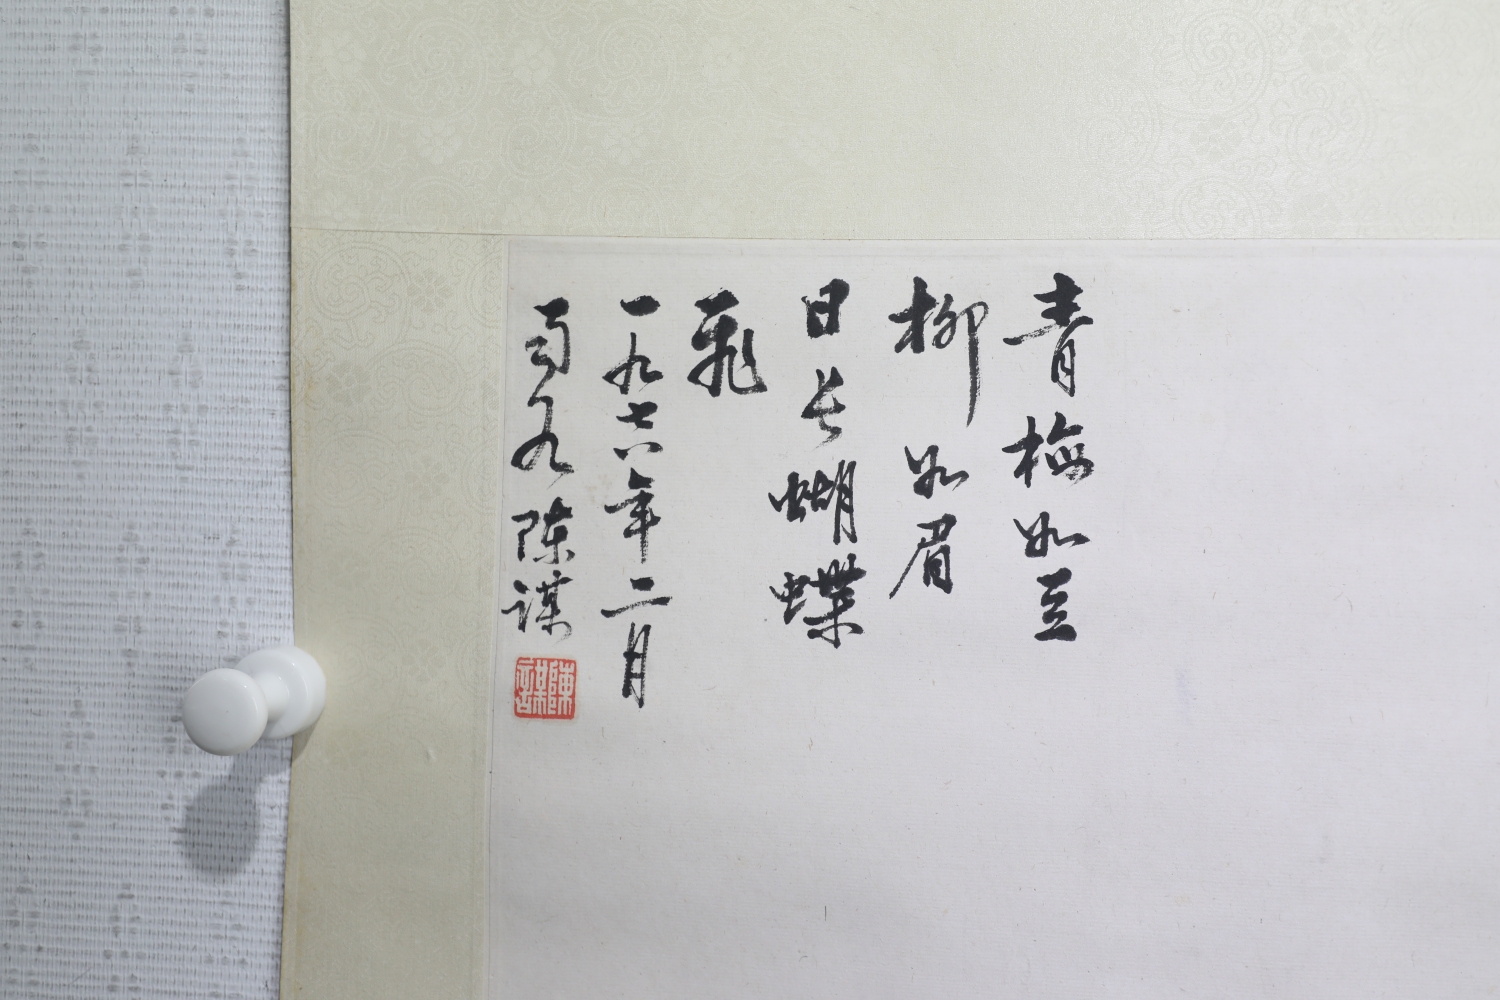 青梅如豆
柳如眉
日长蝴蝶
飛
一九七八年二月
陈谋
陳謀